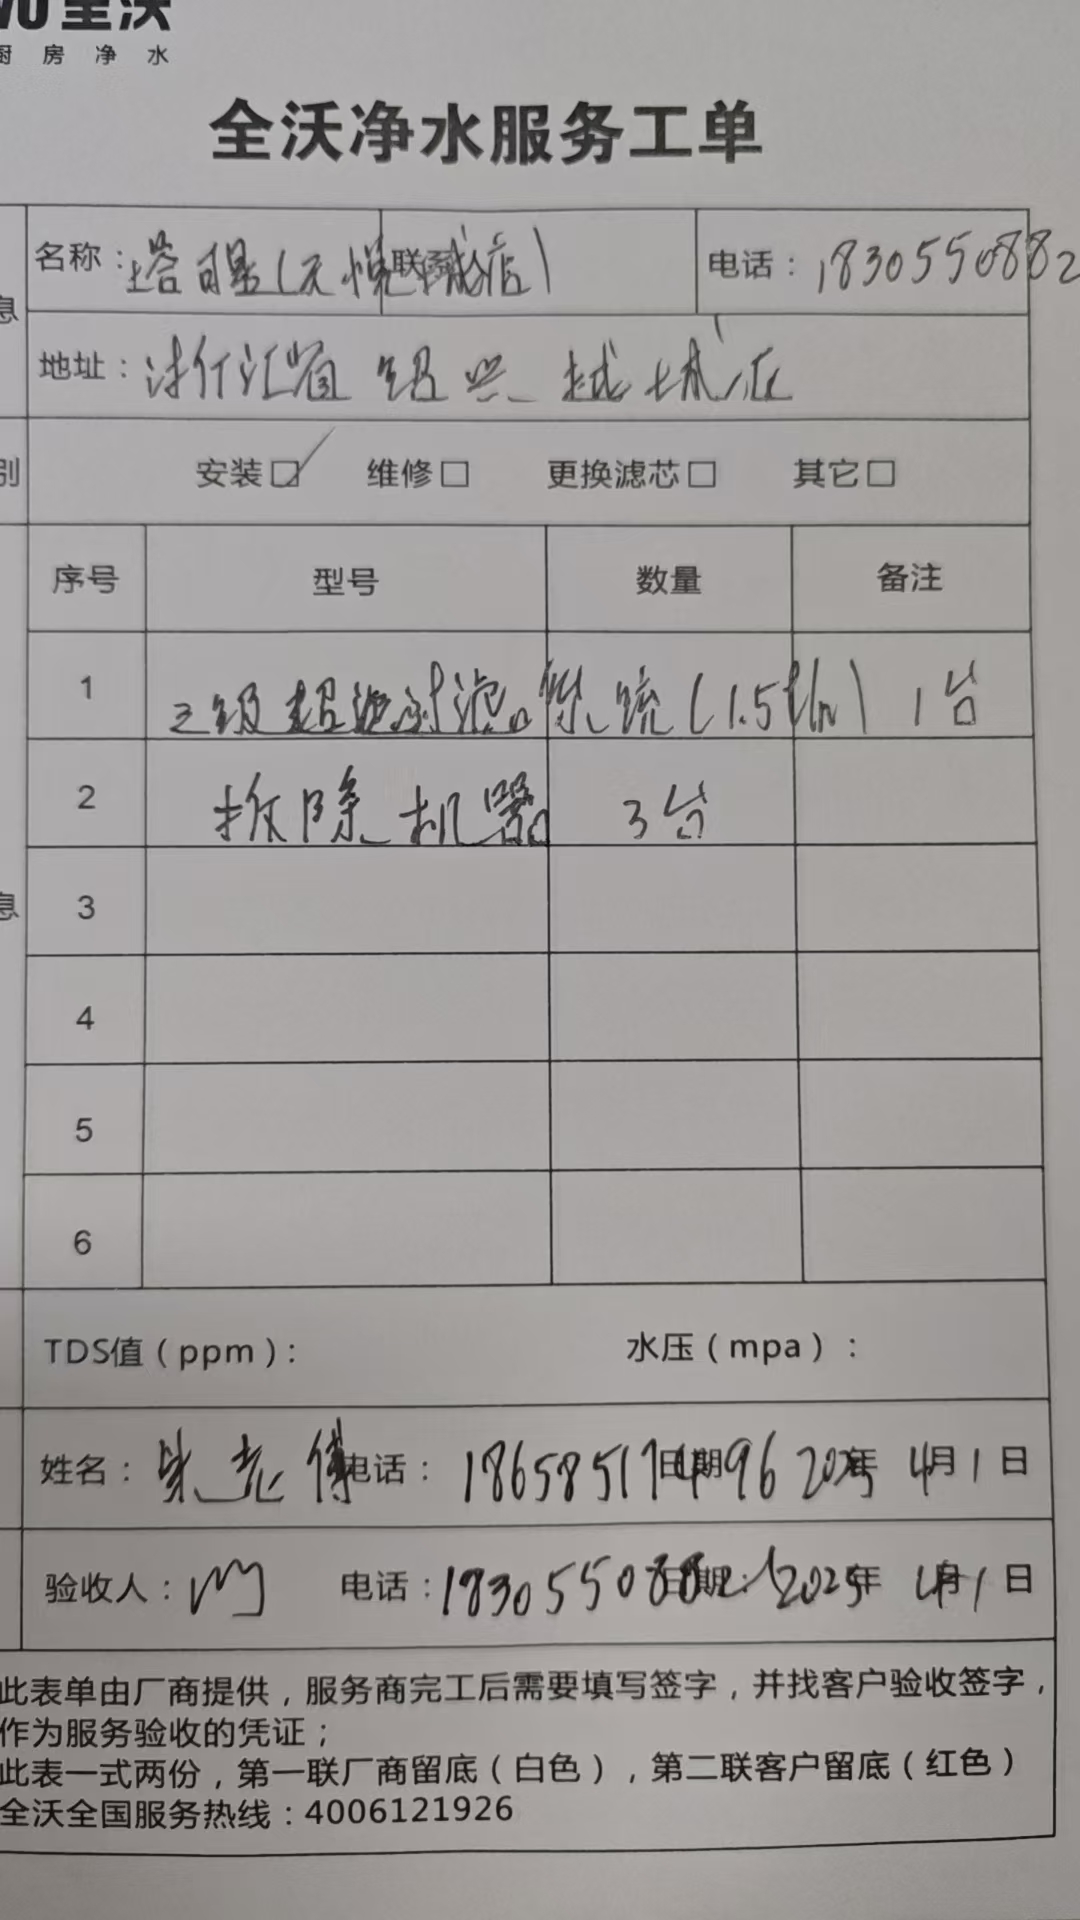 全沃
厨房净水
全沃净水服务工单
息
名称：塔哥(天悦城店) 电话：1830550882
地址：浙江省 绍兴 越城区
别
安装☑ 维修□ 更换滤芯□ 其它□
序号 型号 数量 备注
1 级超滤过滤系统(1.5t/h) 1台
2 拆除机器 3台
息
3
4
5
6
TDS值（ppm）： 水压（mpa）：
姓名： 电话：18658517496 日期 2025年 4月1日
验收人： 电话：1830550882 日期：2025年 4月1日
此表单由厂商提供，服务商完工后需要填写签字，并找客户验收签字，
作为服务验收的凭证；
此表一式两份，第一联厂商留底（白色），第二联客户留底（红色）
全沃全国服务热线：4006121926